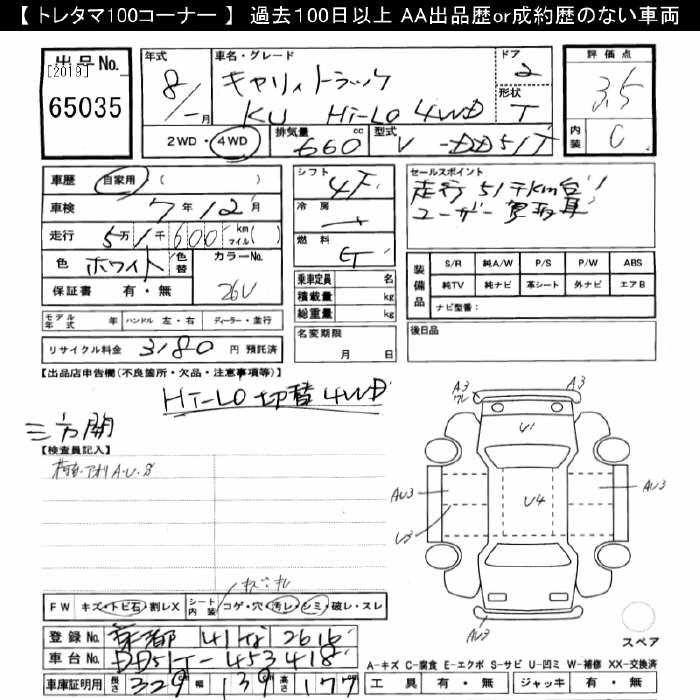 【 トレタマ100コーナー 】 過去100日以上 AA出品歴or成約歴のない車両
出品No. [2019] 65035
年式 8/-月
車名・グレード キャリィトラック KU Hi-Lo 4WD
ドア 2
形状 T
2WD・4WD
排気量 660 cc
型式 V-DD51T
評価点 3.5
内装 C
車歴 自家用 ( )
車検 7年12月
走行 5万1千600 km マイル( )
色 ホワイト 色替
カラーNo. 26U
保証書 有・無
シフト 4F
冷房
燃料
乗車定員 名
積載量 kg
総重量 kg
名変期限 月 日
セールスポイント
走行51千km台!
ユーザー買取車
装備品 S/R 純A/W P/S P/W ABS
純TV 純ナビ 革シート 外ナビ エアB
ナビ型番:
後日品
モデル年式 年 ハンドル 左・右 ディーラー・並行
リサイクル料金 3180 円 預託済
【出品店申告欄(不良箇所・欠品・注意事項等)】
Hi-Lo 切替 4WD
三方開
【検査員記入】
アオリA.U.S
A3
A3
U1
AU3
U4
AU3
U3
AU3
スペア
FW キズ・トビ石・割レX シート内装 コゲ・穴・汚レ・シミ・破レ・スレ
登録No. 京都 41 な 2616
車台No. DD51T-453418
車庫証明用 長さ 329 幅 139 高さ 177
A-キズ C-腐食 E-エクボ S-サビ U-凹ミ W-補修 XX-交換済
工具 有・無 ジャッキ 有・無